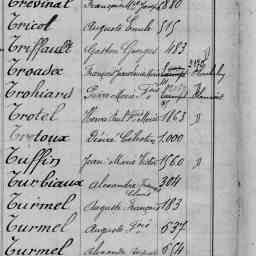 Trovinal François Marie Joseph 880
Tricol Auguste Emile 515
Triffault Gaston Georges 483
Troadec François
Trohiard Pierre Marie
Trotel Henri Paul Marie 1868 D
Trotoux Désiré Célestin 1.000
Tuffin Jean Marie Victor 1560 D
Turbiaux Alexandre 304
Turmel Auguste François 183
Turmel Auguste 637
Turmel Alexandre 654